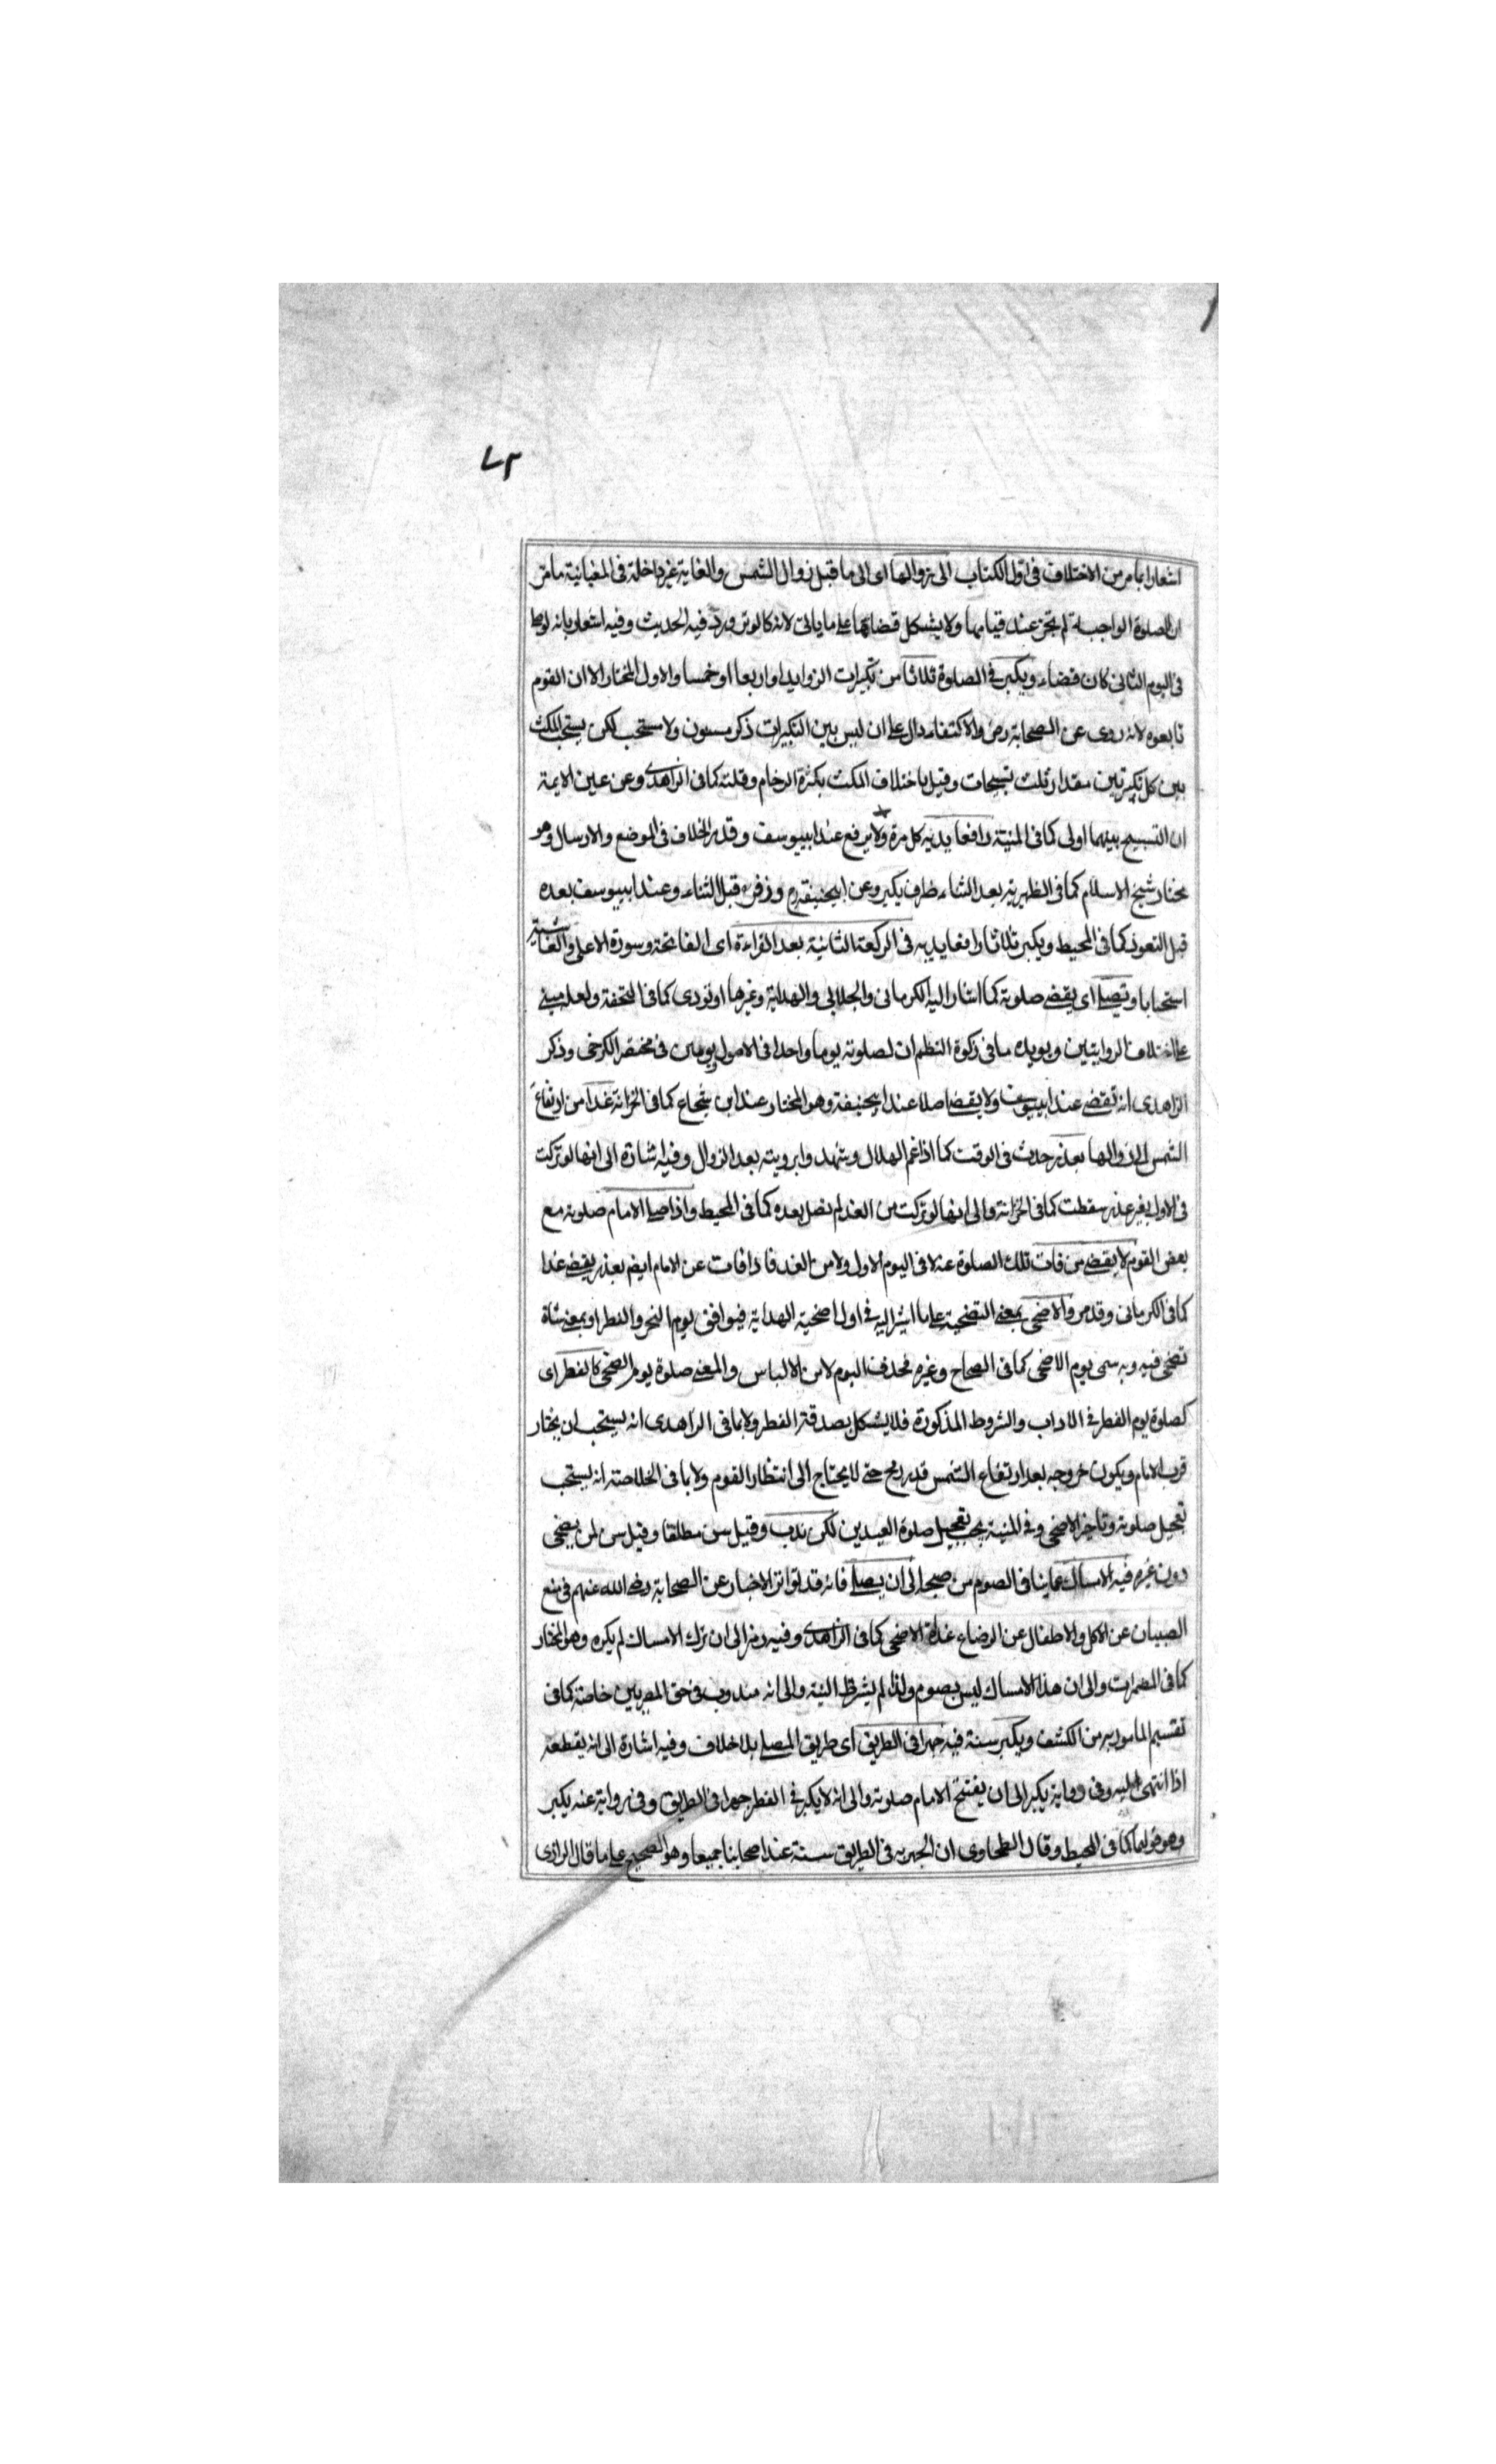 ٧٢
اشعارا بما مر من الاختلاف فى اول الكتاب الى زوالها اى الى ما قبل زوال الشمس والغاية غير داخلة فى المغيا نية ما مر
ان الصلوة الواجبة لم تجز عند قيامها ولا يشكل قضاؤها على ما ياتى لانه كالوتر ورد فيه الحديث وفيه اشعار بانه لو
فى اليوم الثانى كان قضاء ويكبر فى الصلوة ثلاثا من تكبيرات الزوايد او اربعا او خمسا والاول المختار الا ان القوم
تابعوه لانه روى عن الصحابة رض والاكتفاء دال على ان ليس بين التكبيرات ذكر مسنون ولا مستحب لكن يستحب المكث
بين كل تكبيرتين مقدار ثلث تسبيحات وقيل باختلاف المكث بكثرة الزحام وقلته كما فى الزاهدى وعن عين الايمة
ان التسبيح بينهما اولى كما فى المنية رافعا يديه كل مرة ولا يرفع عند ابييوسف وقد مر الخلاف فى الوضع والارسال وهو
مختار شيخ الاسلام كما فى الظهيرية بعد الثناء ظرف يكبر وعن ابيحنيفة رح وزفر قبل الثناء وعند ابييوسف بعده
قبل التعوذ كما فى المحيط ويكبر ثلاثا رافعا يديه فى الركعة الثانية بعد القراءة اى الفاتحة وسورة الاعلى والغاشية
استحبابا وتصلى اى يقضى صلوته كما اشار اليه الكرمانى والجلابى والهداية وغيرها او تودى كما فى التحفة ولعله مبنى
على اختلاف الروايتين ويويده ما فى زكوة النظم ان لصلوته يوما واحدا فى الاصول ويومين فى مختصر الكرخى وذكر
الزاهدى انه تقضى عند ابييوسف ولا يقضى اصلا عند ابيحنيفة وهو المختار عند ابن شجاع كما فى الخزانة غدا من ارتفاع
الشمس الى زوالها بعذر حدث فى الوقت كما اذا غم الهلال وشهدوا برويته بعد الزوال وفيه اشارة الى انها لو تركت
فى الاول بغير عذر سقطت كما فى الخزانة والى انها لو تركت من الغد لم تصل بعده كما فى المحيط واذا صلى الامام صلوته مع
بعض القوم لا يقضى من فات تلك الصلوة عنه لا فى اليوم الاول ولا من الغد فاذا فات عن الامام ايضم بعذر يقضى غدا
كما فى الكرمانى وقد مر والاضحى بمعنى التضحية على ما اشير اليه فى اول اضحية الهداية فيوافق ليوم النحر والفطر او بمعنى شاة
تضحى فيه وبه سمى يوم الاضحى كما فى الصحاح وغيره فحذف اليوم لامن الالباس والمعنى صلوة يوم الضحى كالفطر اى
كصلوة يوم الفطر فى الاداب والشروط المذكورة فلا يشكل بصدقة الفطر ولا بما فى الزاهدى انه يستحب ان يختار
قرب الامام ويكون خروجه بعد ارتفاع الشمس قدر رمح حتى لا يحتاج الى انتظار القوم ولا بما فى الخلاصة انه يستحب
تعجيل صلوته وتاخير الاضحى وفى المنية يجب تعجيل صلوة العيدين لكن ندب وقيل سن مطلقا وقيل سن لمن يضحى
دون غيره فيه الامساك عما ينافى الصوم من صبح الى ان يصلى فانه قد تواتر الاخبار عن الصحابة رضى الله عنهم فى منع
الصبيان عن الاكل والاطفال عن الرضاع غداة الاضحى كما فى الزاهدى وفيه رمز الى ان ترك الامساك لم يكره وهو المختار
كما فى المضمرات والى ان هذا الامساك ليس بصوم ولذا لم يشرط النية والى انه مندوب فى حق المصريين خاصة كما فى
تقسيم المامور به من الكشف ويكبر سنة فيه جهرا فى الطريق اى طريق المصلى بلا خلاف وفيه اشارة الى انه يقطعه
اذا انتهى اليه وفى رواية يكبر الى ان يفتتح الامام صلوته والى انه لا يكبر فى الفطر جهرا فى الطريق وفى رواية عنه يكبر
وهو قولهما كما فى المحيط وقال الطحاوى ان الجهر به فى الطريق سنة عند اصحابنا جميعا وهو الصحيح على ما قال الرازى